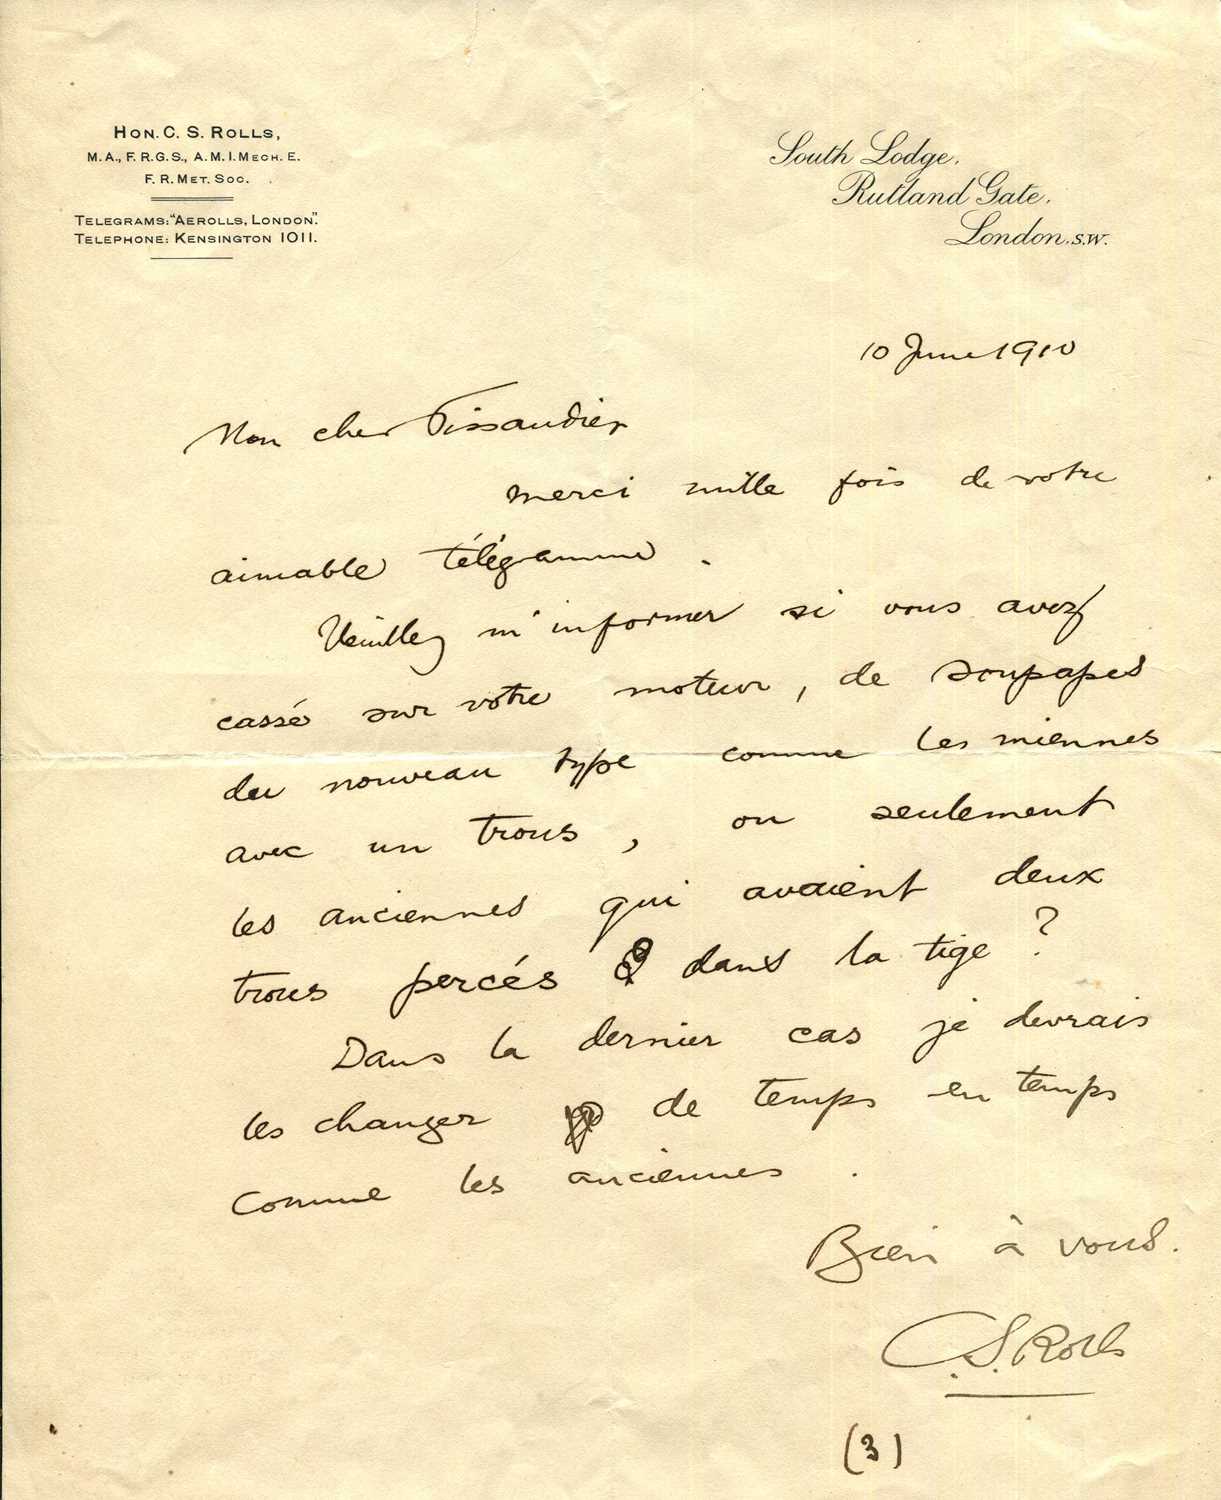 HON. C. S. ROLLS,
M.A., F.R.G.S., A.M.I.MECH.E.
F.R.MET.SOC.
TELEGRAMS: "AEROLLS, LONDON".
TELEPHONE: KENSINGTON 1011.
South Lodge,
Rutland Gate,
London, S.W.
10 June 1910
Mon cher Tissandier
merci mille fois de votre
aimable télégramme.
Veuillez m'informer si vous avez
cassé sur votre moteur, de soupapes
du nouveau type comme les miennes
avec un trous, ou seulement
les anciennes qui avaient deux
trous percés dans la tige?
Dans la dernier cas je devrais
les changer de temps en temps
comme les anciennes.
Bien à vous.
C.S. Rolls
(3)